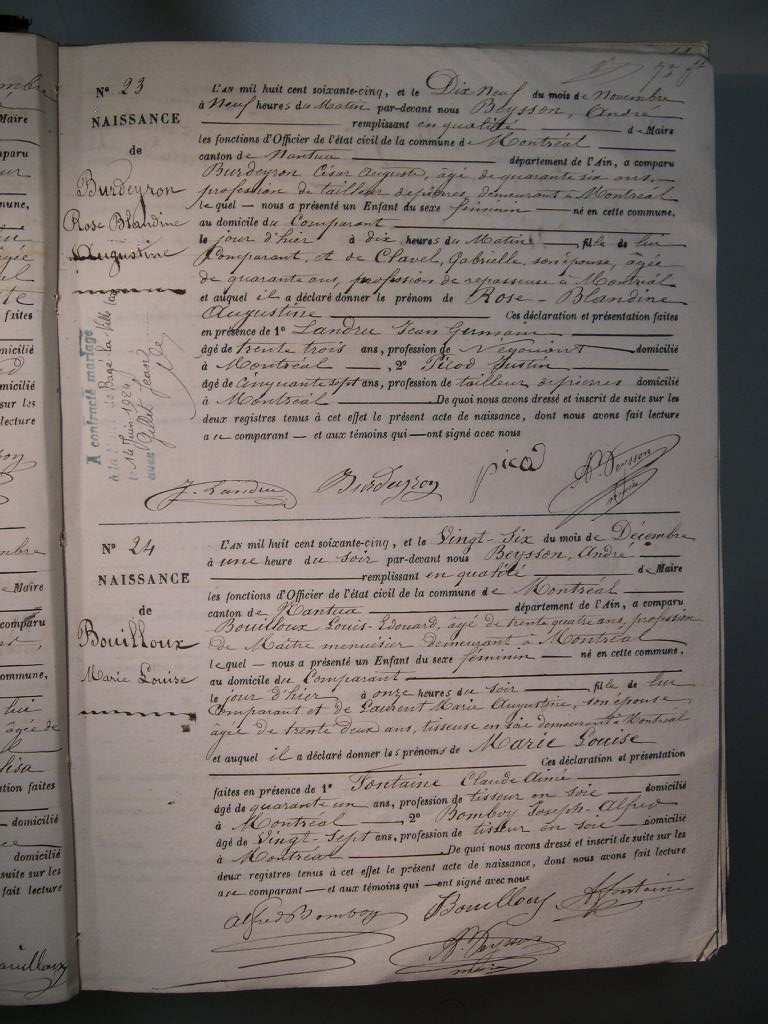 Nº 23
NAISSANCE
de
Burdeyron
Rose Blandine
Augustine
A contracté mariage
le 14 Juin 1924
avec Gillet Jean
L'AN mil huit cent soixante-cinq, et le Dix Neuf du mois de Novembre
à Neuf heures du Matin par-devant nous Beysson, André
remplissant en qualité de Maire
les fonctions d'Officier de l'état civil de la commune de Montréal
canton de Nantua département de l'Ain, a comparu
Burdeyron César Auguste, âgé de quarante six ans,
profession de tailleur de pierres, demeurant à Montréal
lequel — nous a présenté un Enfant du sexe féminin — né en cette commune,
au domicile du Comparant
le jour d'hier à dix heures du Matin, fille de lui
Comparant, et de Clavel, Gabrielle, son épouse, âgée
de quarante ans, profession de repasseuse à Montréal
et auquel il a déclaré donner le prénom de Rose-Blandine
Augustine Ces déclaration et présentation faites
en présence de 1º Landru Jean Germain
âgé de trente trois ans, profession de Négociant domicilié
à Montréal, 2º Picod Justin
âgé de Cinquante sept ans, profession de tailleur de pierres domicilié
à Montréal De quoi nous avons dressé et inscrit de suite sur les
deux registres tenus à cet effet le présent acte de naissance, dont nous avons fait lecture
au comparant — et aux témoins qui — ont signé avec nous
J. Landru Burdeyron picod A. Beysson
Nº 24
NAISSANCE
de
Bouilloux
Marie Louise
L'AN mil huit cent soixante-cinq, et le Vingt-Six du mois de Décembre
à une heure du soir par-devant nous Beysson, André
remplissant en qualité de Maire
les fonctions d'Officier de l'état civil de la commune de Montréal
canton de Nantua département de l'Ain, a comparu
Bouilloux Louis-Edouard, âgé de trente quatre ans, profession
de Maître menuisier demeurant à Montréal
lequel — nous a présenté un Enfant du sexe féminin — né en cette commune,
au domicile du Comparant
le jour d'hier à onze heures du soir, fille de lui
Comparant et de Laurent Marie Augustine, son épouse
âgée de trente deux ans, tisseuse en soie demeurant à Montréal
et auquel il a déclaré donner les prénoms de Marie Louise
Ces déclaration et présentation
faites en présence de 1º Fontaine Claude Aimé
âgé de quarante un ans, profession de tisseur en soie domicilié
à Montréal, 2º Bomboy Joseph-Alfred
âgé de Vingt-Sept ans, profession de tisseur en soie domicilié
à Montréal De quoi nous avons dressé et inscrit de suite sur les
deux registres tenus à cet effet le présent acte de naissance, dont nous avons fait lecture
au comparant — et aux témoins qui — ont signé avec nous
Alfred Bomboy Bouilloux Fontaine
A. Beysson
maire